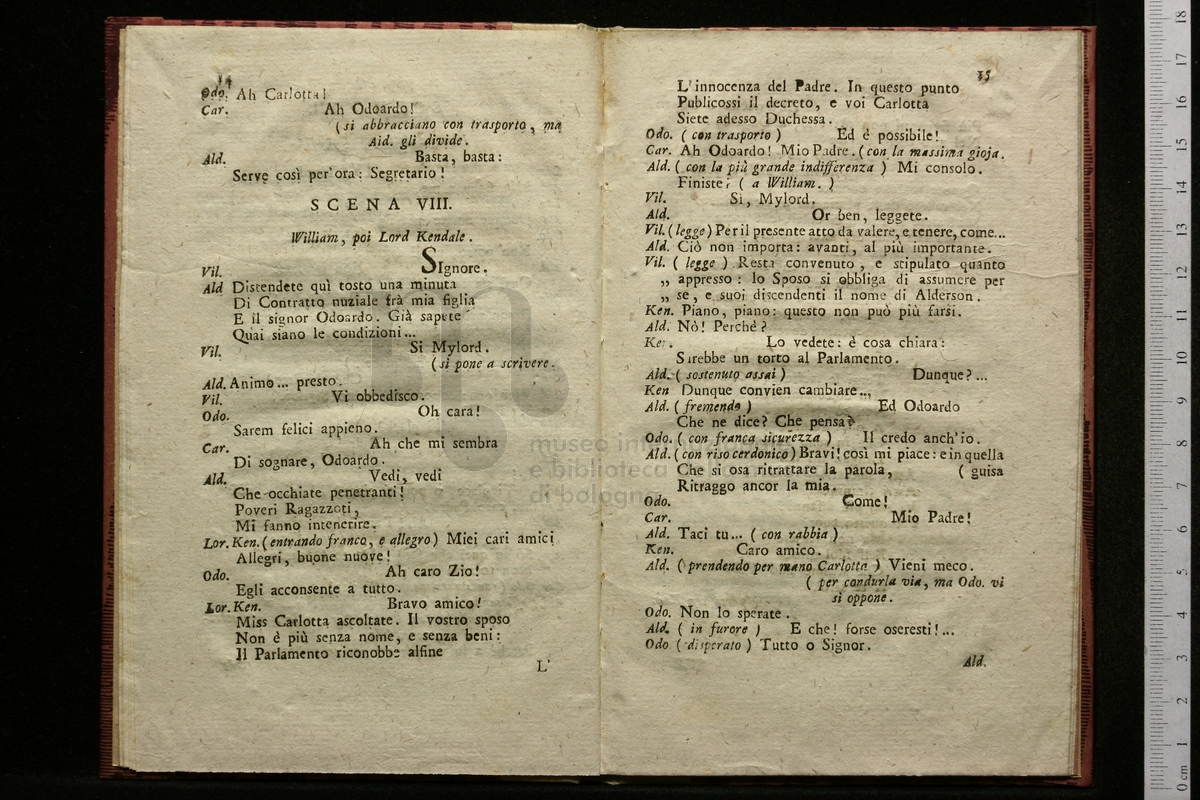 14
Odo. Ah Carlotta!
Car. Ah Odoardo!
(si abbracciano con trasporto, ma
Aid. gli divide.
Ald. Basta, basta:
Serve così per'ora: Segretario!
SCENA VIII.
William, poi Lord Kendale.
Vil. SIgnore.
Ald Distendete quì tosto una minuta
Di Contratto nuziale frà mia figlia
E il signor Odoardo. Già sapete
Quai siano le condizioni...
Vil. Si Mylord.
(si pone a scrivere.
Ald. Animo... presto.
Vil. Vi obbedisco.
Odo. Oh cara!
Sarem felici appieno.
Car. Ah che mi sembra
Di sognare, Odoardo.
Ald. Vedi, vedi
Che occhiate penetranti!
Poveri Ragazzoti,
Mi fanno intenerire.
Lor. Ken. (entrando franco, e allegro) Miei cari amici
Allegri, buone nuove!
Odo. Ah caro Zio!
Egli acconsente a tutto.
Lor. Ken. Bravo amico!
Miss Carlotta ascoltate. Il vostro sposo
Non è più senza nome, e senza beni:
Il Parlamento riconobbe alfine
L'
15
L'innocenza del Padre. In questo punto
Publicossi il decreto, e voi Carlotta
Siete adesso Duchessa.
Odo. (con trasporto) Ed è possibile!
Car. Ah Odoardo! Mio Padre. (con la massima gioja.
Ald. (con la più grande indifferenza) Mi consolo.
Finiste? (a William.)
Vil. Si, Mylord.
Ald. Or ben, leggete.
Vil. (legge) Per il presente atto da valere, e tenere, come...
Ald. Ciò non importa: avanti, al più importante.
Vil. (legge) Resta convenuto, e stipulato quanto
„ appresso: lo Sposo si obbliga di assumere per
„ se, e suoi discendenti il nome di Alderson.
Ken. Piano, piano: questo non può più farsi.
Ald. Nò! Perchè?
Ken. Lo vedete: è cosa chiara:
Sarebbe un torto al Parlamento.
Ald. (sostenuto assai) Dunque?...
Ken Dunque convien cambiare...
Ald. (fremendo) Ed Odoardo
Che ne dice? Che pensa?
Odo. (con franca sicurezza) Il credo anch'io.
Ald. (con riso cerdonico) Bravi! così mi piace: e in quella
Che si osa ritrattare la parola, (guisa
Ritraggo ancor la mia.
Odo. Come!
Car. Mio Padre!
Ald. Taci tu... (con rabbia)
Ken. Caro amico.
Ald. (prendendo per mano Carlotta) Vieni meco.
(per condurla via, ma Odo. vi
si oppone.
Odo. Non lo sperate.
Ald. (in furore) E che! forse oseresti!...
Odo (disperato) Tutto o Signor.
Ald.
museo
e biblioteca
di bologna
0 cm 1 2 3 4 5 6 7 8 9 10 11 12 13 14 15 16 17 18